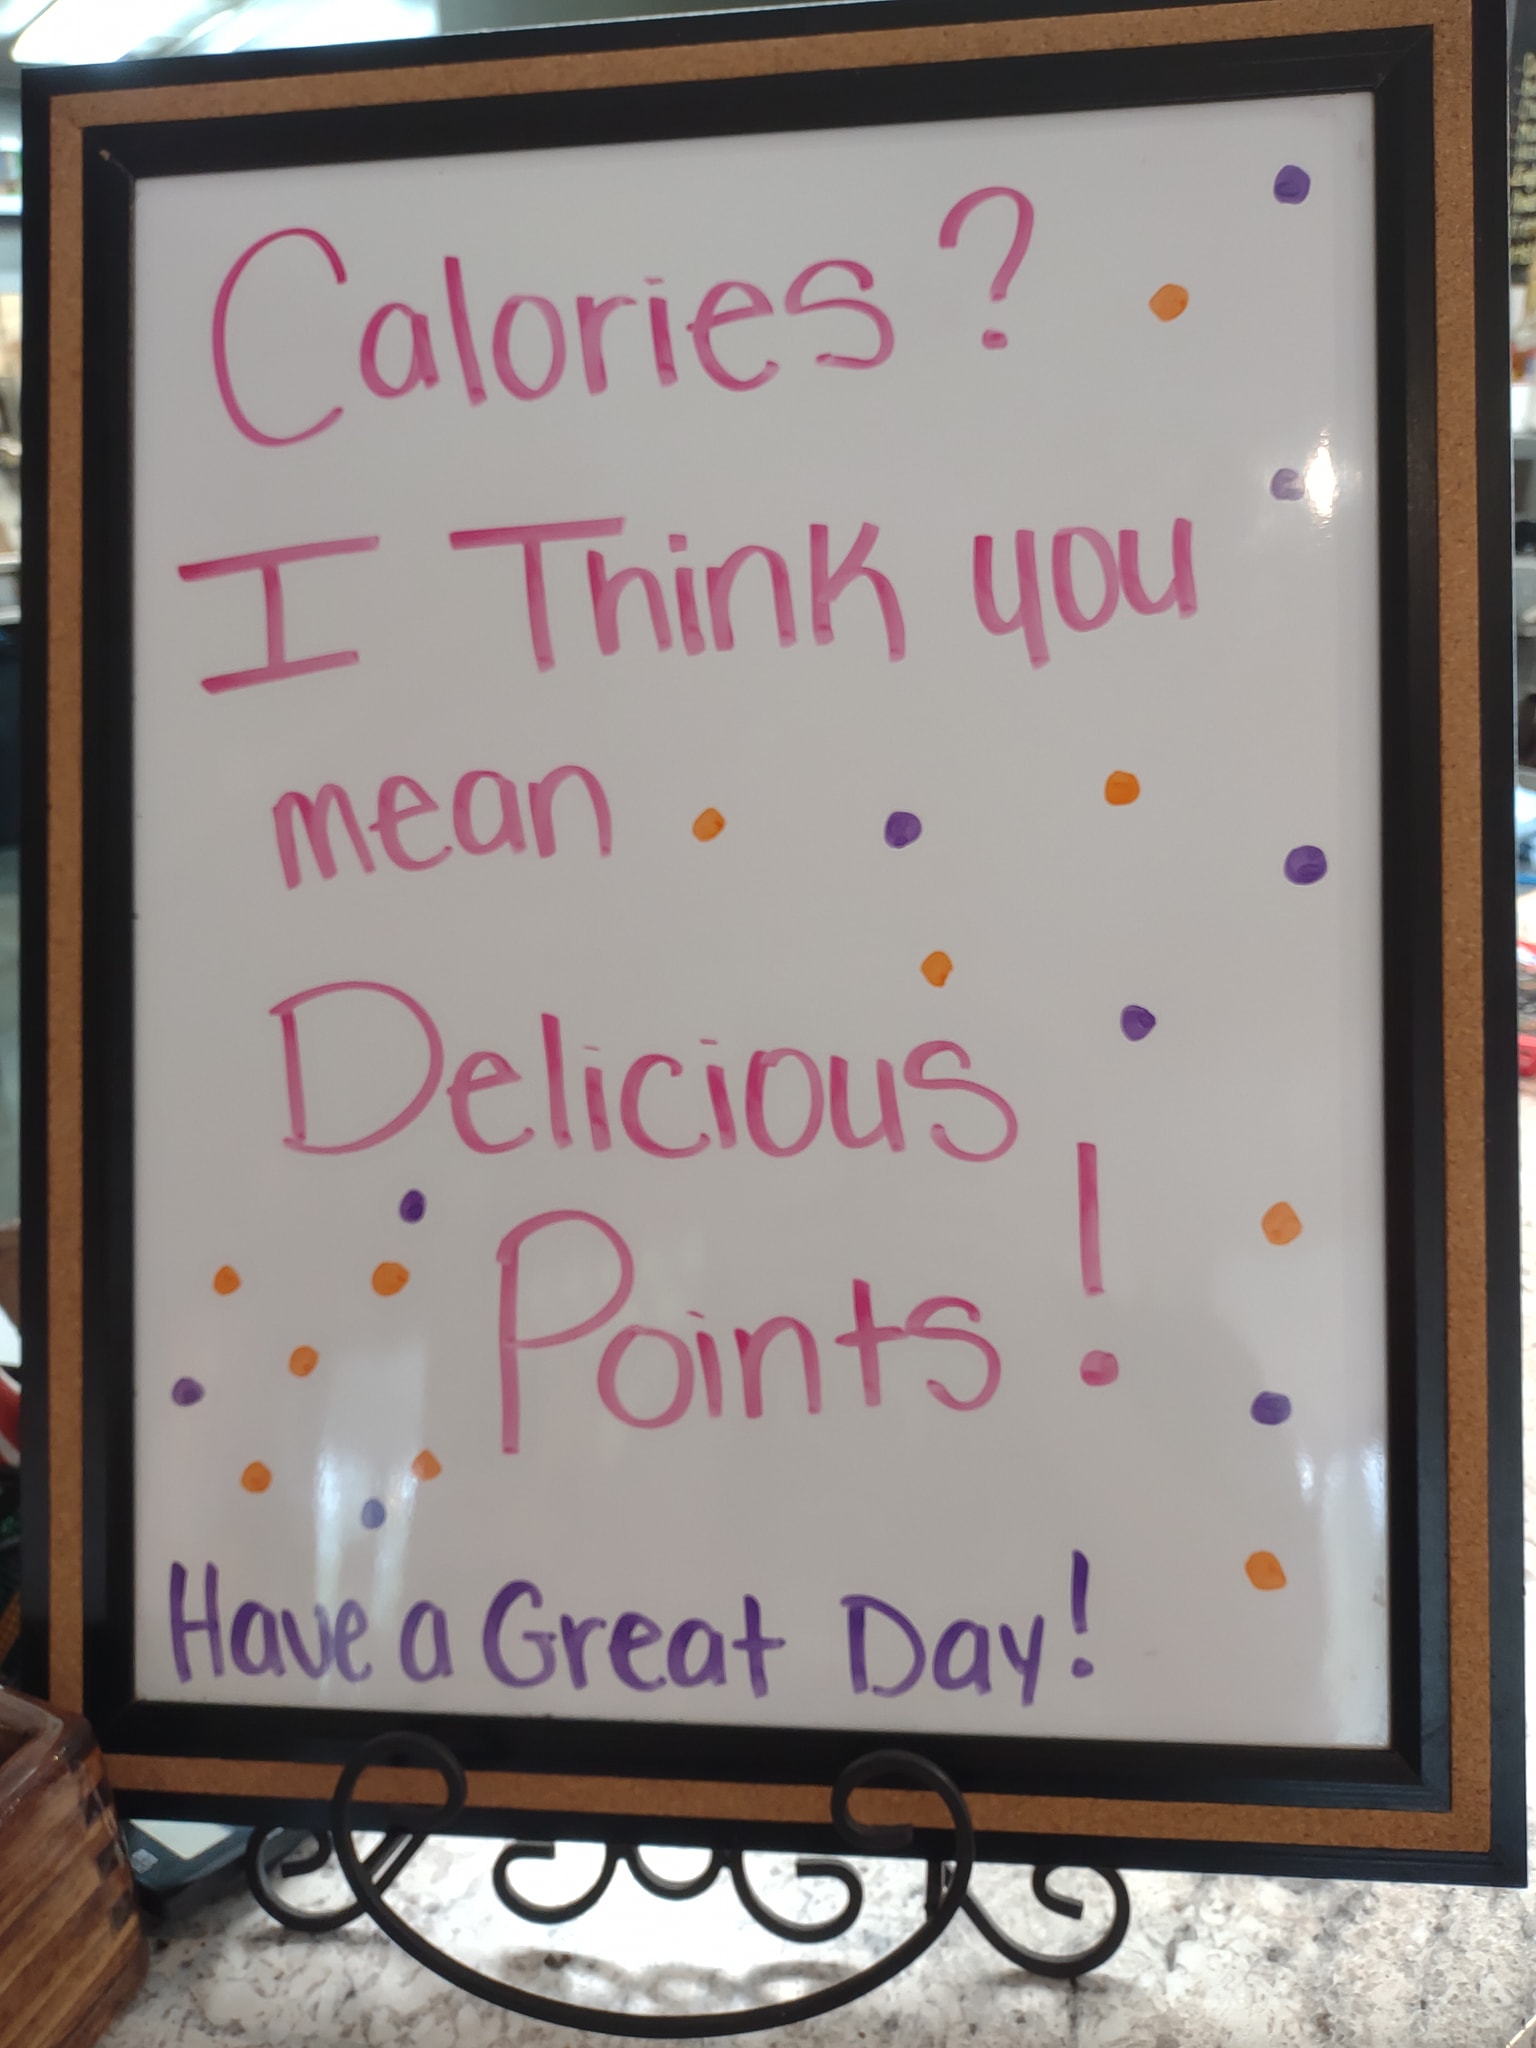 Calories?
I Think you
mean
Delicious
Points!
Have a Great Day!